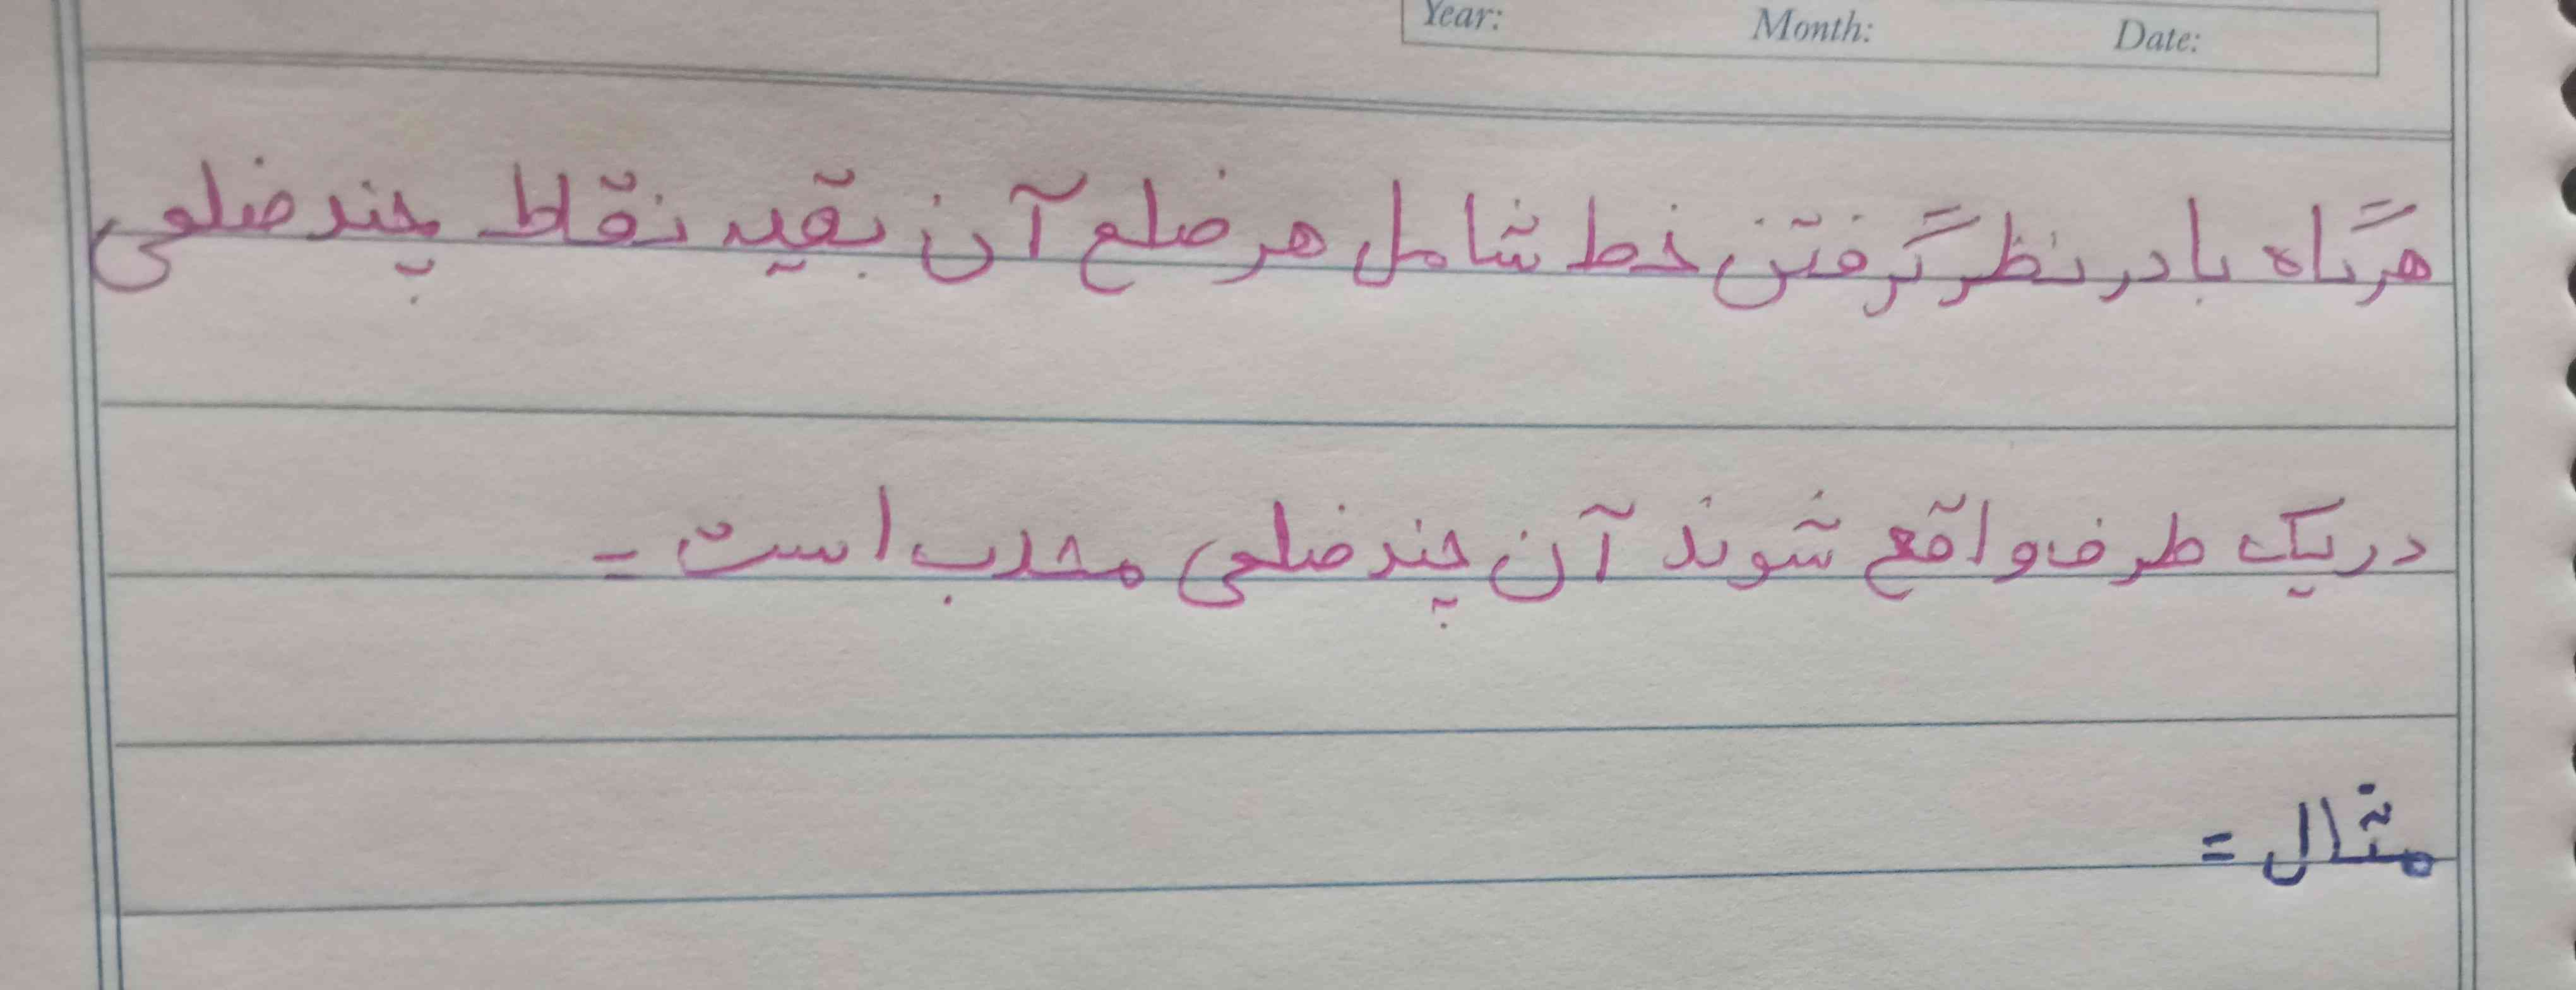 Year: Month: Date:
هرگاه با در نظر گرفتن خط شامل هر ضلع آن بقیه نقاط چند ضلعی
در یک طرف واقع شوند آن چند ضلعی محدب است -
مثال =